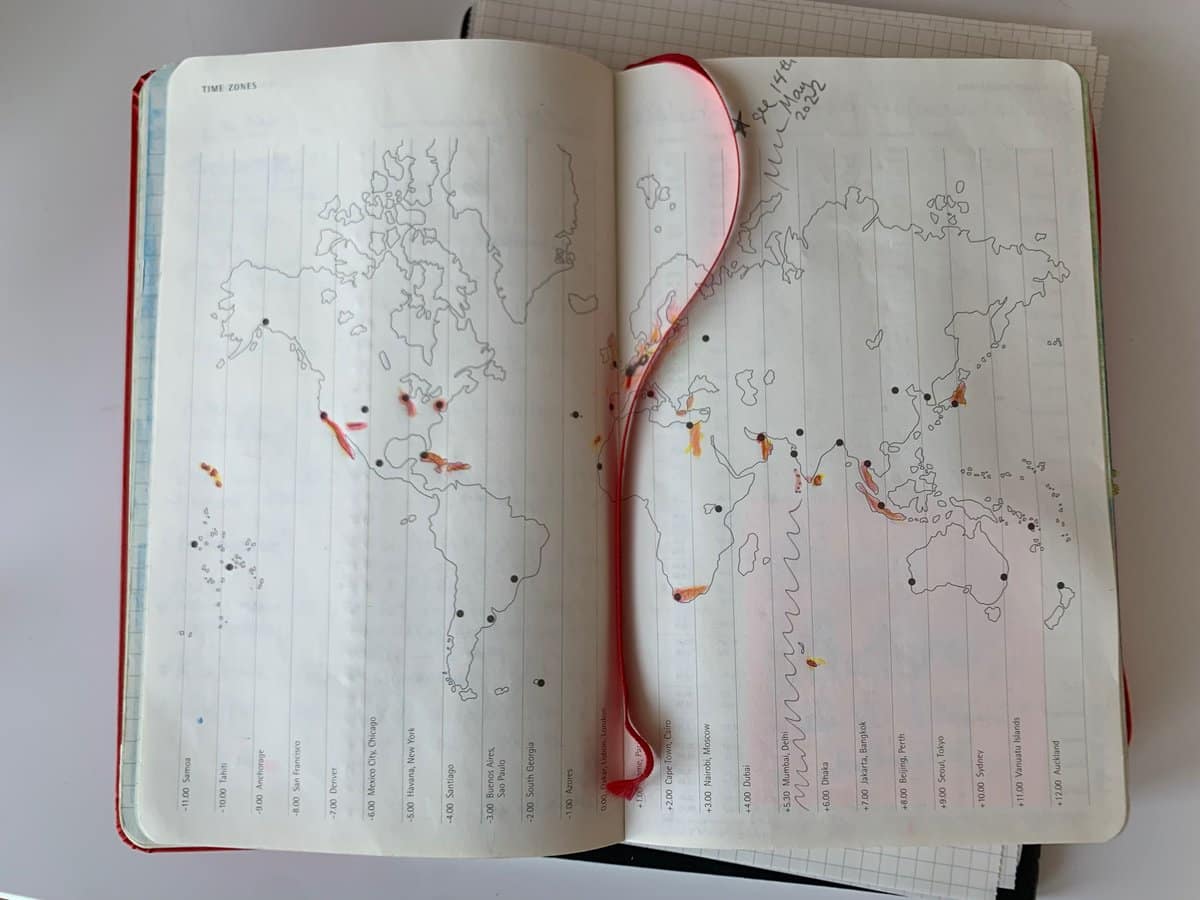 TIME ZONES
see 14th
May
2022
-11.00 Samoa
-10.00 Tahiti
-9.00 Anchorage
-8.00 San Francisco
-7.00 Denver
-6.00 Mexico City, Chicago
-5.00 Havana, New York
-4.00 Santiago
-3.00 Buenos Aires,
Sao Paulo
-2.00 South Georgia
-1.00 Azores
0.00 Dakar, Lisbon, London
+2.00 Cape Town, Cairo
+3.00 Nairobi, Moscow
+4.00 Dubai
+5.30 Mumbai, Delhi
+6.00 Dhaka
+7.00 Jakarta, Bangkok
+8.00 Beijing, Perth
+9.00 Seoul, Tokyo
+10.00 Sydney
+11.00 Vanuatu Islands
+12.00 Auckland